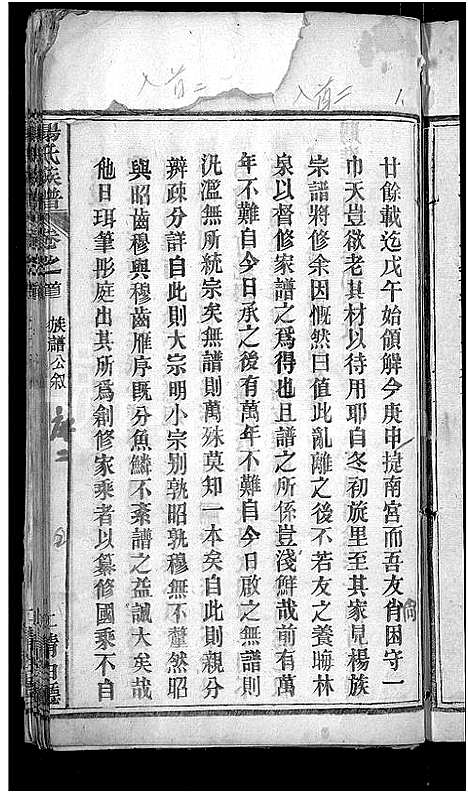 廿餘載迄戊午始領解今庚申捷南宮而吾友尙困守一
巾天豈欲老其材以待用耶自冬初旋里至其家見楊族
宗譜將修余因慨然曰值此亂離之後不若友之養晦林
泉以督修家譜之爲得也且譜之所係豈淺鮮哉前有萬
年不難自今日承之後有萬年不難自今日啟之無譜則
氿濫無所統宗矣無譜則萬殊莫知一本矣自此則親分
辨疎分詳自此則大宗明小宗别孰昭孰穆無不釐然昭
與昭齒穆與穆齒雁序既分魚鱗不紊譜之益誠大矣哉
他日珥筆彤庭出其所爲創修家乘者以纂修國乘不自
楊氏族譜 卷之首 族譜公叙